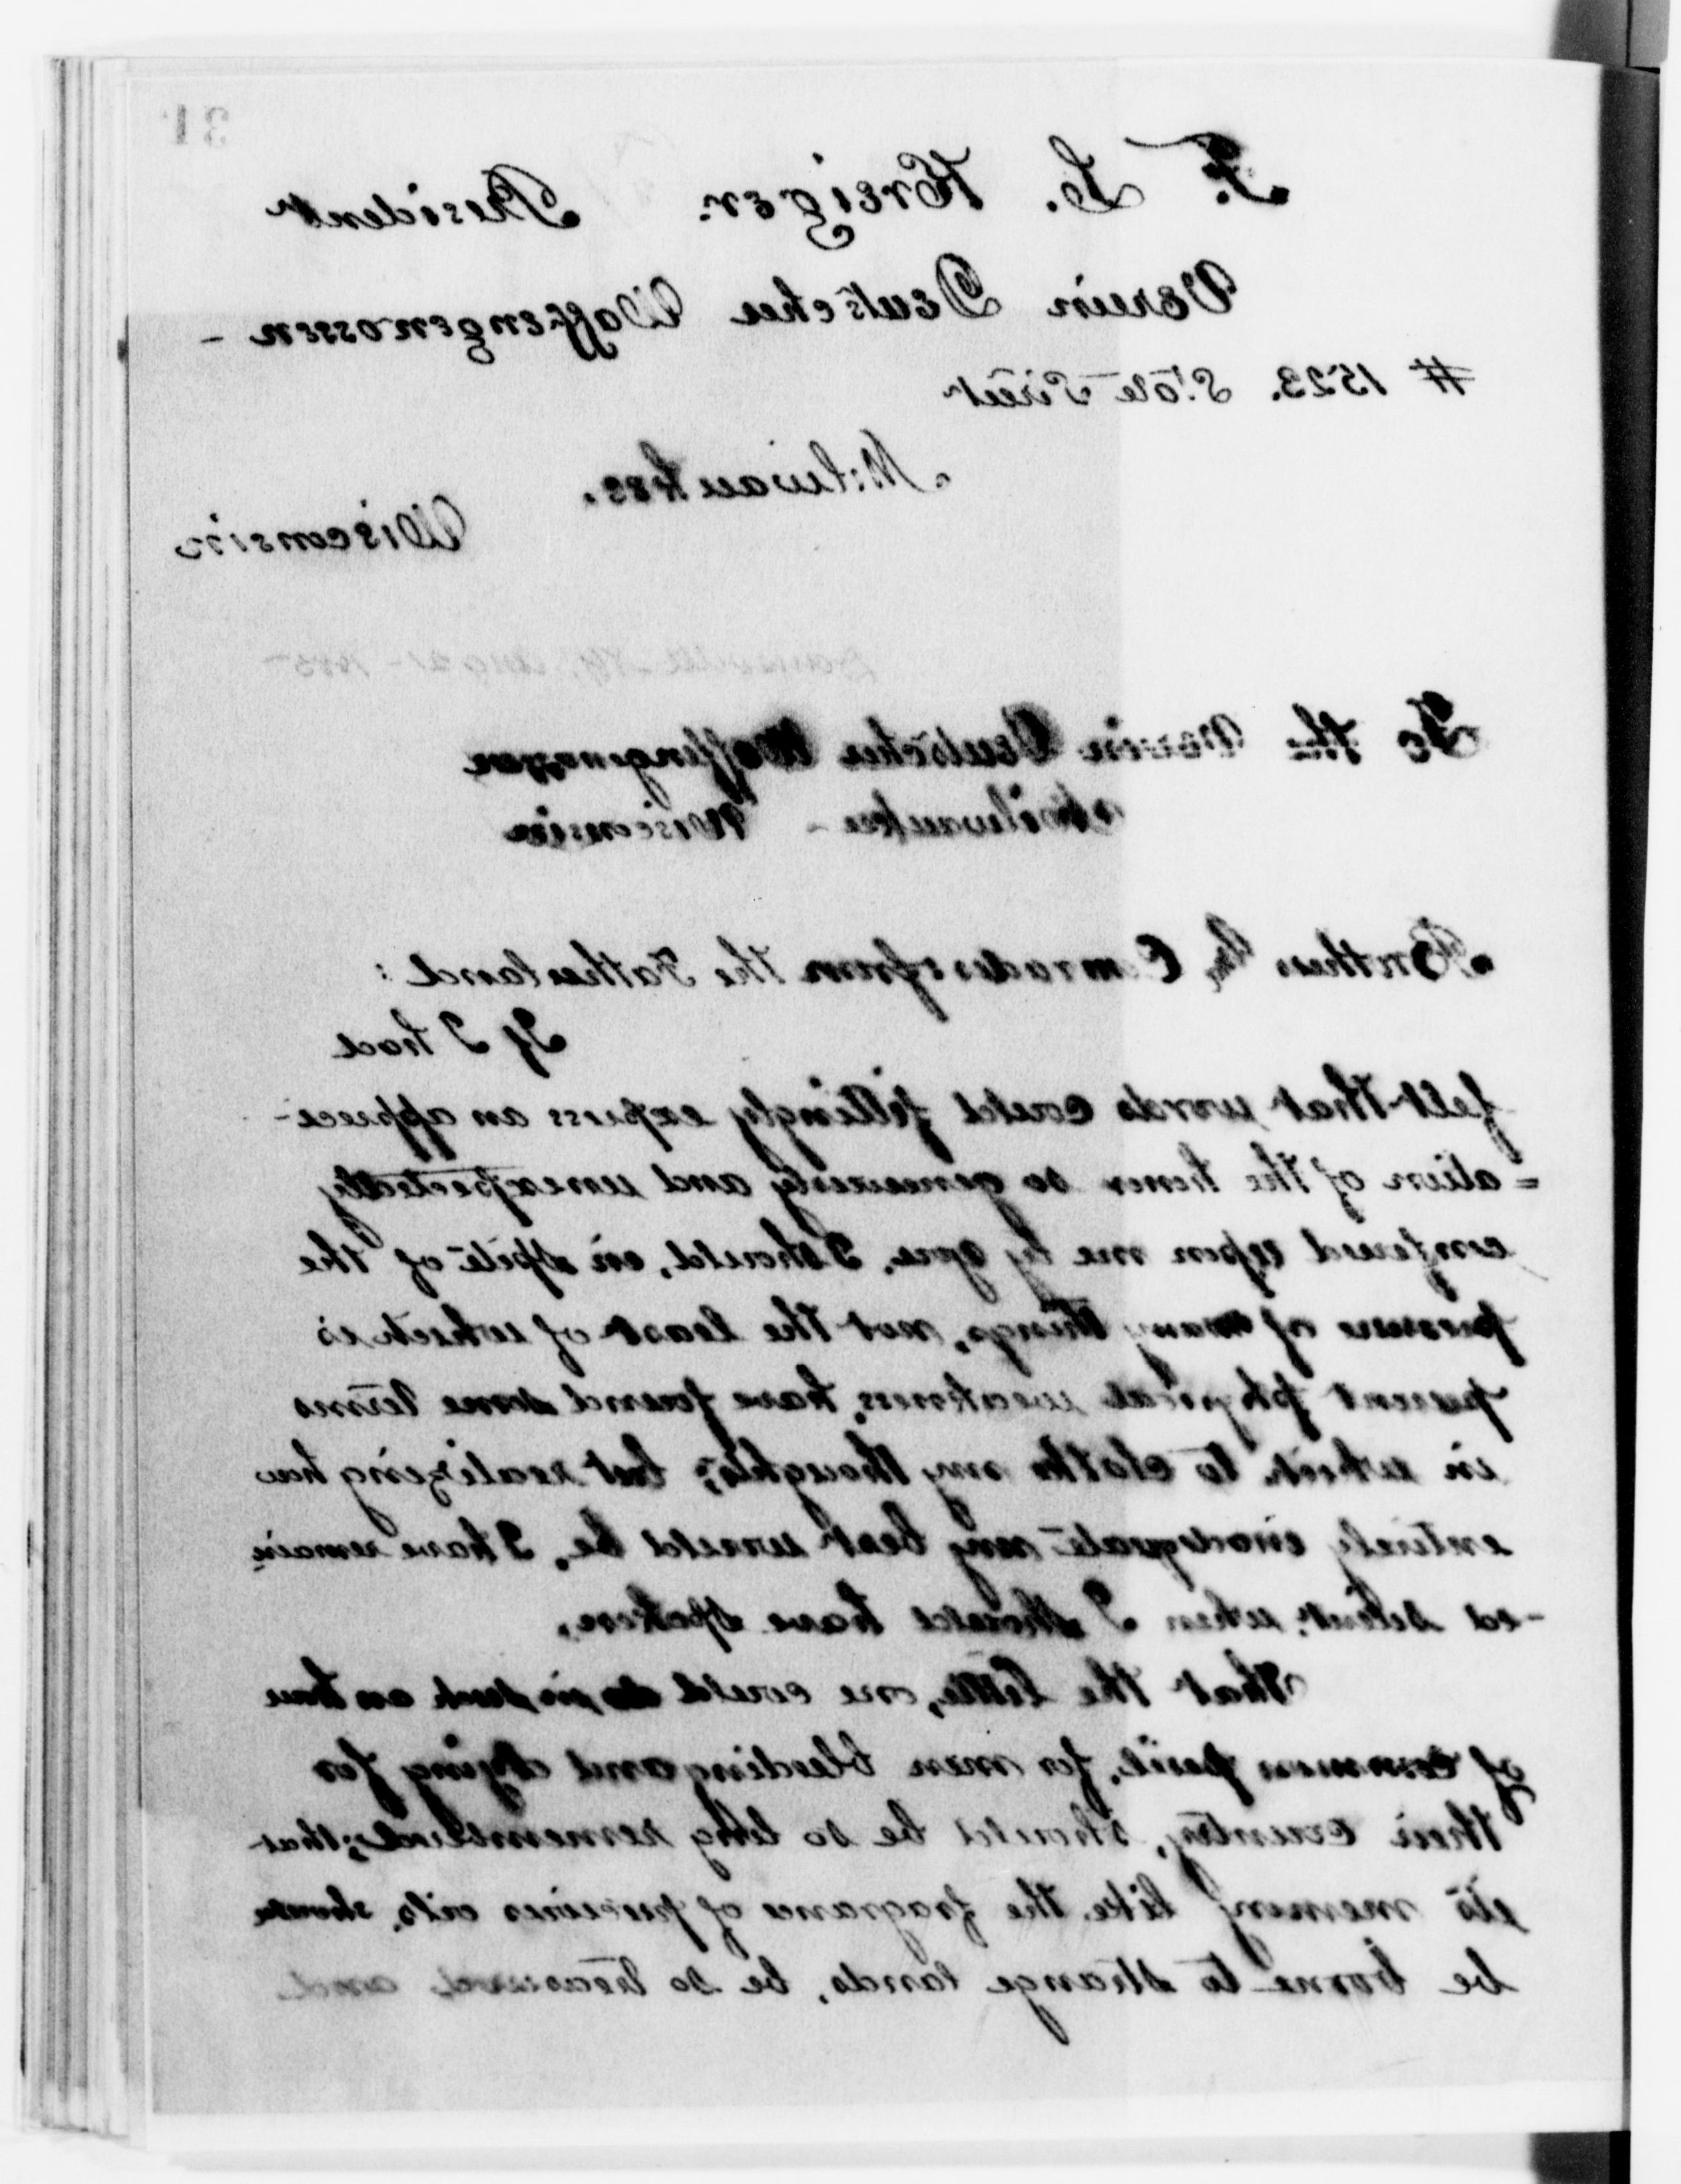 31
F. L. Kreiger. President
Verein Deutscher Waffengenossen -
# 1523. State Street
Milwaukee.
Wisconsin
Dansville NY, Aug 21 - 1885 -
To the Verein Deutscher Waffengenossen
Milwaukee - Wisconsin
Brothers & Comrades from the Fatherland:
If I had
felt that words could fittingly express an appreci-
=ation of the honor so generously and unexpectedly
conferred upon me by you, I should, in spite of the
pressure of many things, not the least of which is
present physical weakness, have found some terms
in which to clothe my thoughts; but realizing how
entirely inadequate my best would be, I have remain
-ed silent, when I should have spoken.
That the little, one could do in such an hour
of common peril, for men bleeding and dying for
their country, should be so long remembered; that
its memory like the fragrance of precious oils, should
be borne to strange lands, be so treasured and